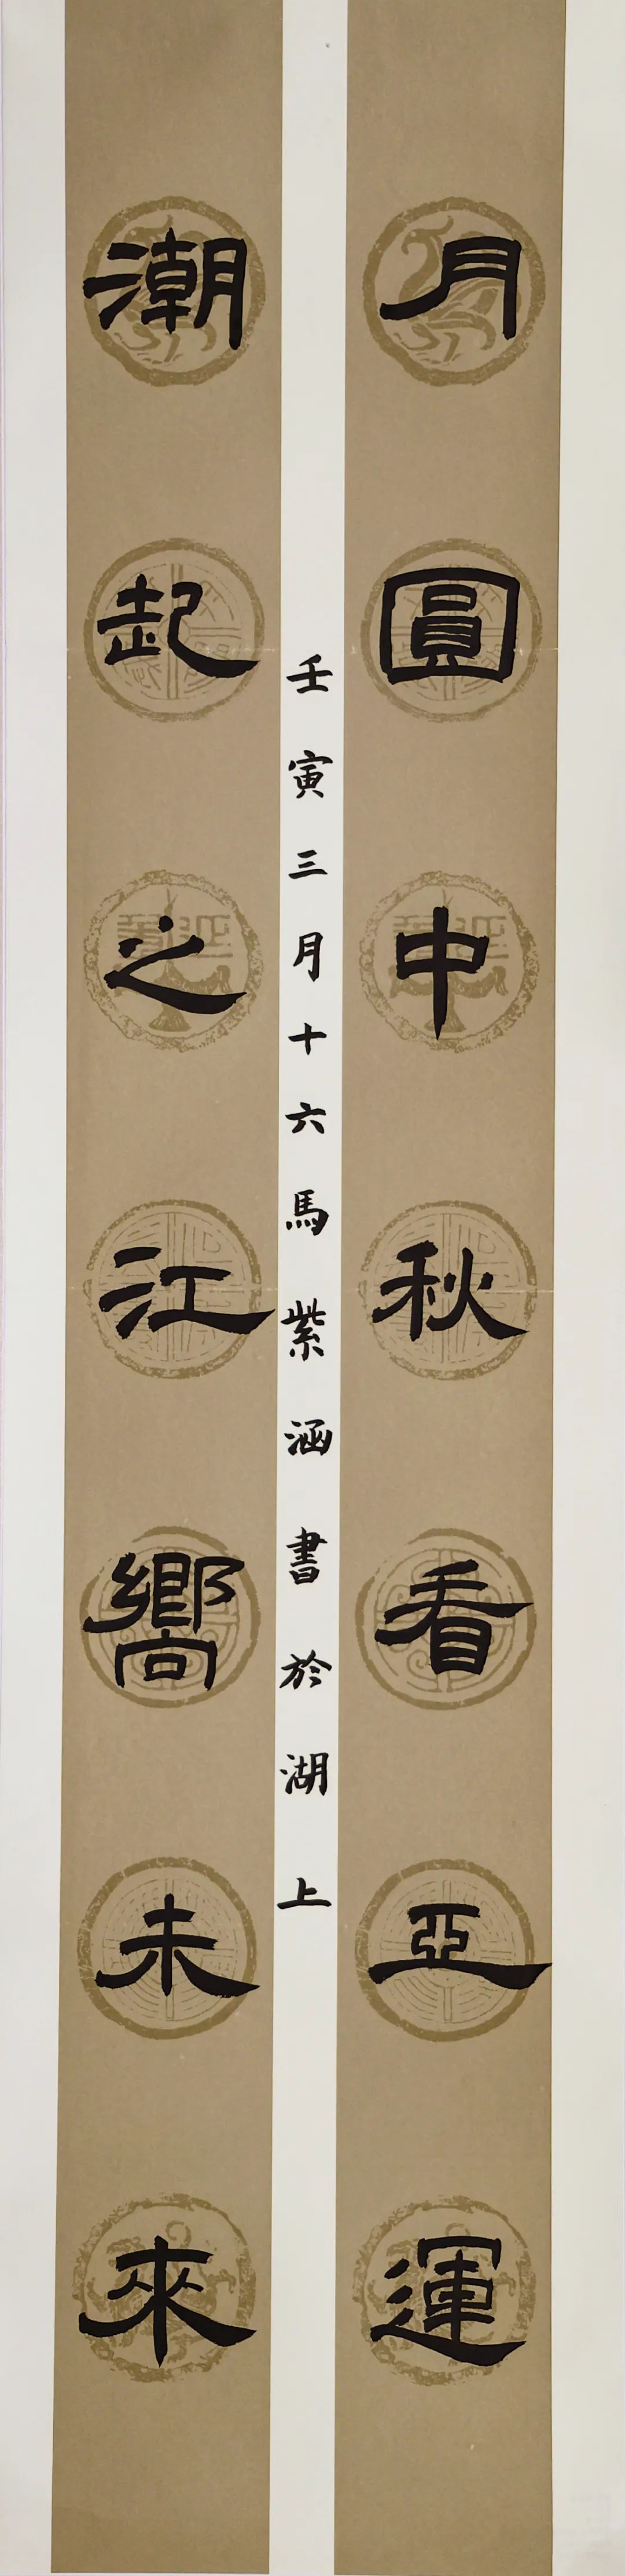 月圓中秋看亞運
潮起之江嚮未來
壬寅三月十六馬紫涵書於湖上